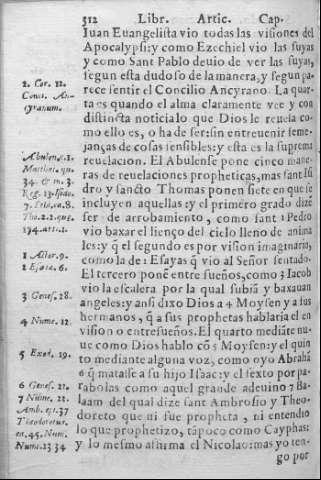 312 Libr. Artic. Cap.
Iuan Euangelista vio todas las visiones del
Apocalypsi: y como Ezechiel vio las suyas
y como Sant Pablo deuio de ver las suyas,
segun esta dudoso de la manera, y segun pa
rece sentir el Concilio Ancyrano. La quar
ta es quando el alma claramente vee y con
distincta noticia lo que Dios le reuela co
mo ello es, o ha de ser: sin entreuenir seme-
janças de cosas sensibles: y esta es la suprema
reuelacion. El Abulense pone cinco mane
ras de reuelaciones propheticas, mas sant Isi
dro y sancto Thomas ponen siete en que se
incluyen aquellas: y el primero grado dize
ser de arrobamiento, como sant 1 Pedro
vio baxar el lienço del cielo lleno de anima
les: y q̃ el segundo es por vision imaginaria,
como la de 2 Esayas q̃ vio al Señor sentado.
El tercero ponẽ entre sueños, como 3 Iacob
vio la escalera por la qual subiã y baxauan
angeles: y ansi dixo Dios a 4 Moysen y a sus
hermanos, q̃ a sus prophetas hablaria el en
vision o entresueños. El quarto mediãte nu-
ue como Dios hablo cõ 5 Moysen: y el quin
to mediante alguna voz, como oyo Abrahã
6 q̃ matasse a su hijo Isaac: y el sexto por pa-
rabolas como aquel grande adeuino 7 Ba-
laam del qual dize sant Ambrosio y Theo-
doreto que ni fue propheta, ni entendio
lo que prophetizo, tãpoco como Cayphas:
y lo mesmo afirma el Nicolao: mas yo ten-
go por
2. Cor. 12.
Conci. An-
cyranum.
Abulen.
1 Actor. 9.
2 Esaie. 6.
3 Genes. 28.
4 Nume. 12.
5 Exod. 19.
6 Genes. 22.
7 Nume. 22.
Amb. epi. 37
Theodoretus.
Nume. 23 24